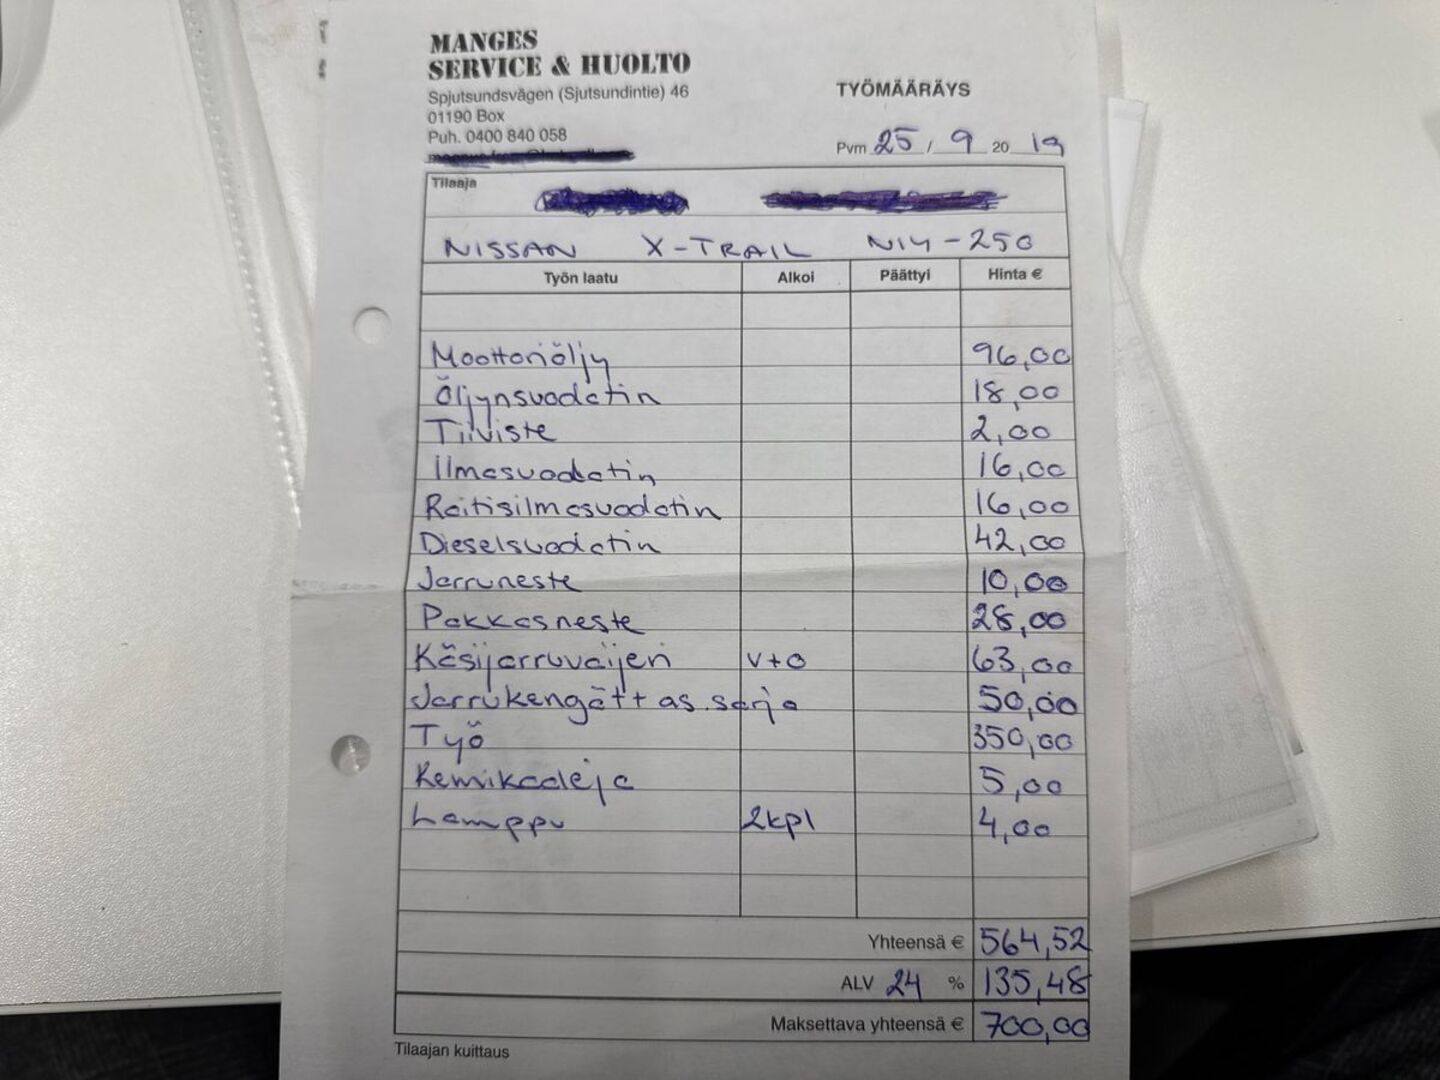 MANGES
SERVICE & HUOLTO
Spjutsundsvägen (Sjutsundintie) 46
01190 Box
Puh. 0400 840 058
TYÖMÄÄRÄYS
Pvm 25 / 9 20 19
Tilaaja
NISSAN X-TRAIL NIY-250
Työn laatu Alkoi Päättyi Hinta €
Moottoriöljy 96,00
Öljynsuodatin 18,00
Tiiviste 2,00
Ilmasuodatin 16,00
Raitisilmasuodatin 16,00
Dieselsuodatin 42,00
Jarruneste 10,00
Pakkasneste 28,00
Käsijarruvaijeri V+O 63,00
Jarrukengät+as.sarja 50,00
Työ 350,00
Kemikaaleja 5,00
Lamppu 2kpl 4,00
Yhteensä € 564,52
ALV 24 % 135,48
Maksettava yhteensä € 700,00
Tilaajan kuittaus